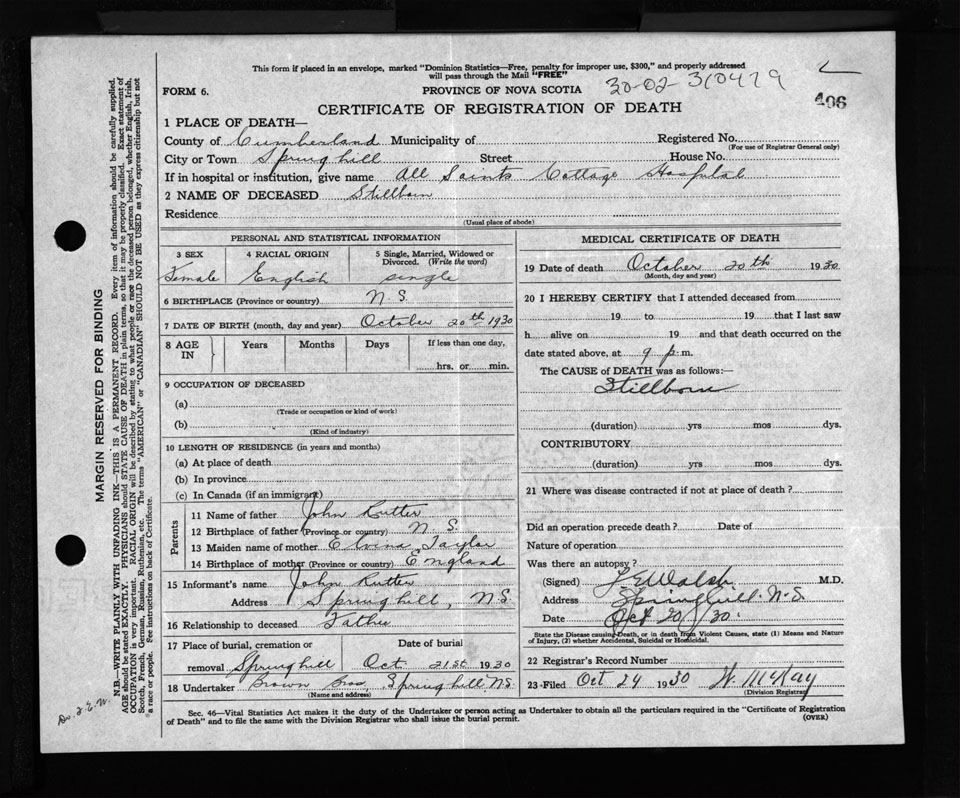 This form if placed in an envelope, marked "Dominion Statistics—Free, penalty for improper use, $300," and properly addressed
will pass through the Mail "FREE"
FORM 6.
PROVINCE OF NOVA SCOTIA
30-02-310479
406
CERTIFICATE OF REGISTRATION OF DEATH
1 PLACE OF DEATH—
County of Cumberland Municipality of Registered No.
(For use of Registrar General only)
City or Town Springhill Street House No.
If in hospital or institution, give name All Saints Cottage Hospital
2 NAME OF DECEASED Stillborn
Residence
(Usual place of abode)
PERSONAL AND STATISTICAL INFORMATION
3 SEX 4 RACIAL ORIGIN 5 Single, Married, Widowed or
Divorced. (Write the word)
Female English single
6 BIRTHPLACE (Province or country) N.S.
7 DATE OF BIRTH (month, day and year) October 20th 1930
8 AGE IN Years Months Days If less than one day,
hrs. or min.
9 OCCUPATION OF DECEASED
(a)
(Trade or occupation or kind of work)
(b)
(Kind of industry)
10 LENGTH OF RESIDENCE (in years and months)
(a) At place of death
(b) In province
(c) In Canada (if an immigrant)
Parents
11 Name of father John Rutter
12 Birthplace of father (Province or country) N.S.
13 Maiden name of mother Elvina Taylor
14 Birthplace of mother (Province or country) England
15 Informant's name John Rutter
Address Springhill, N.S.
16 Relationship to deceased Father
17 Place of burial, cremation or Date of burial
removal Springhill Oct 21st 1930
18 Undertaker Brown Bros. Springhill N.S.
(Name and address)
MEDICAL CERTIFICATE OF DEATH
19 Date of death October 20th 1930
(Month, day and year)
20 I HEREBY CERTIFY that I attended deceased from
19 to 19 that I last saw
h alive on 19 and that death occurred on the
date stated above, at 9 p.m.
The CAUSE of DEATH was as follows:—
Stillborn
(duration) yrs mos dys.
CONTRIBUTORY
(duration) yrs mos dys.
21 Where was disease contracted if not at place of death?
Did an operation precede death? Date of
Nature of operation
Was there an autopsy?
(Signed) Walsh M.D.
Address Springhill N.S.
Date Oct 20/30
State the Disease causing Death, or in death from Violent Causes, state (1) Means and Nature
of Injury, (2) whether Accidental, Suicidal or Homicidal.
22 Registrar's Record Number
23 Filed Oct 24 1930 W. McKay
(Division Registrar)
Sec. 46—Vital Statistics Act makes it the duty of the Undertaker or person acting as Undertaker to obtain all the particulars required in the "Certificate of Registration
of Death" and to file the same with the Division Registrar who shall issue the burial permit.
(OVER)
MARGIN RESERVED FOR BINDING
N.B.—WRITE PLAINLY WITH UNFADING INK—THIS IS A PERMANENT RECORD. Every item of information should be carefully supplied.
AGE should be stated EXACTLY. PHYSICIANS should STATE CAUSE OF DEATH in plain terms, so that it may be properly classified. Exact statement of
OCCUPATION is very important. RACIAL ORIGIN will be described by stating to what people or race the deceased person belonged, whether English, Irish,
Scotch, French, German, Russian, Ruthenian, etc. The terms "AMERICAN" or "CANADIAN" SHOULD NOT BE USED as they express citizenship but not
a race or people. See instructions on back of Certificate.